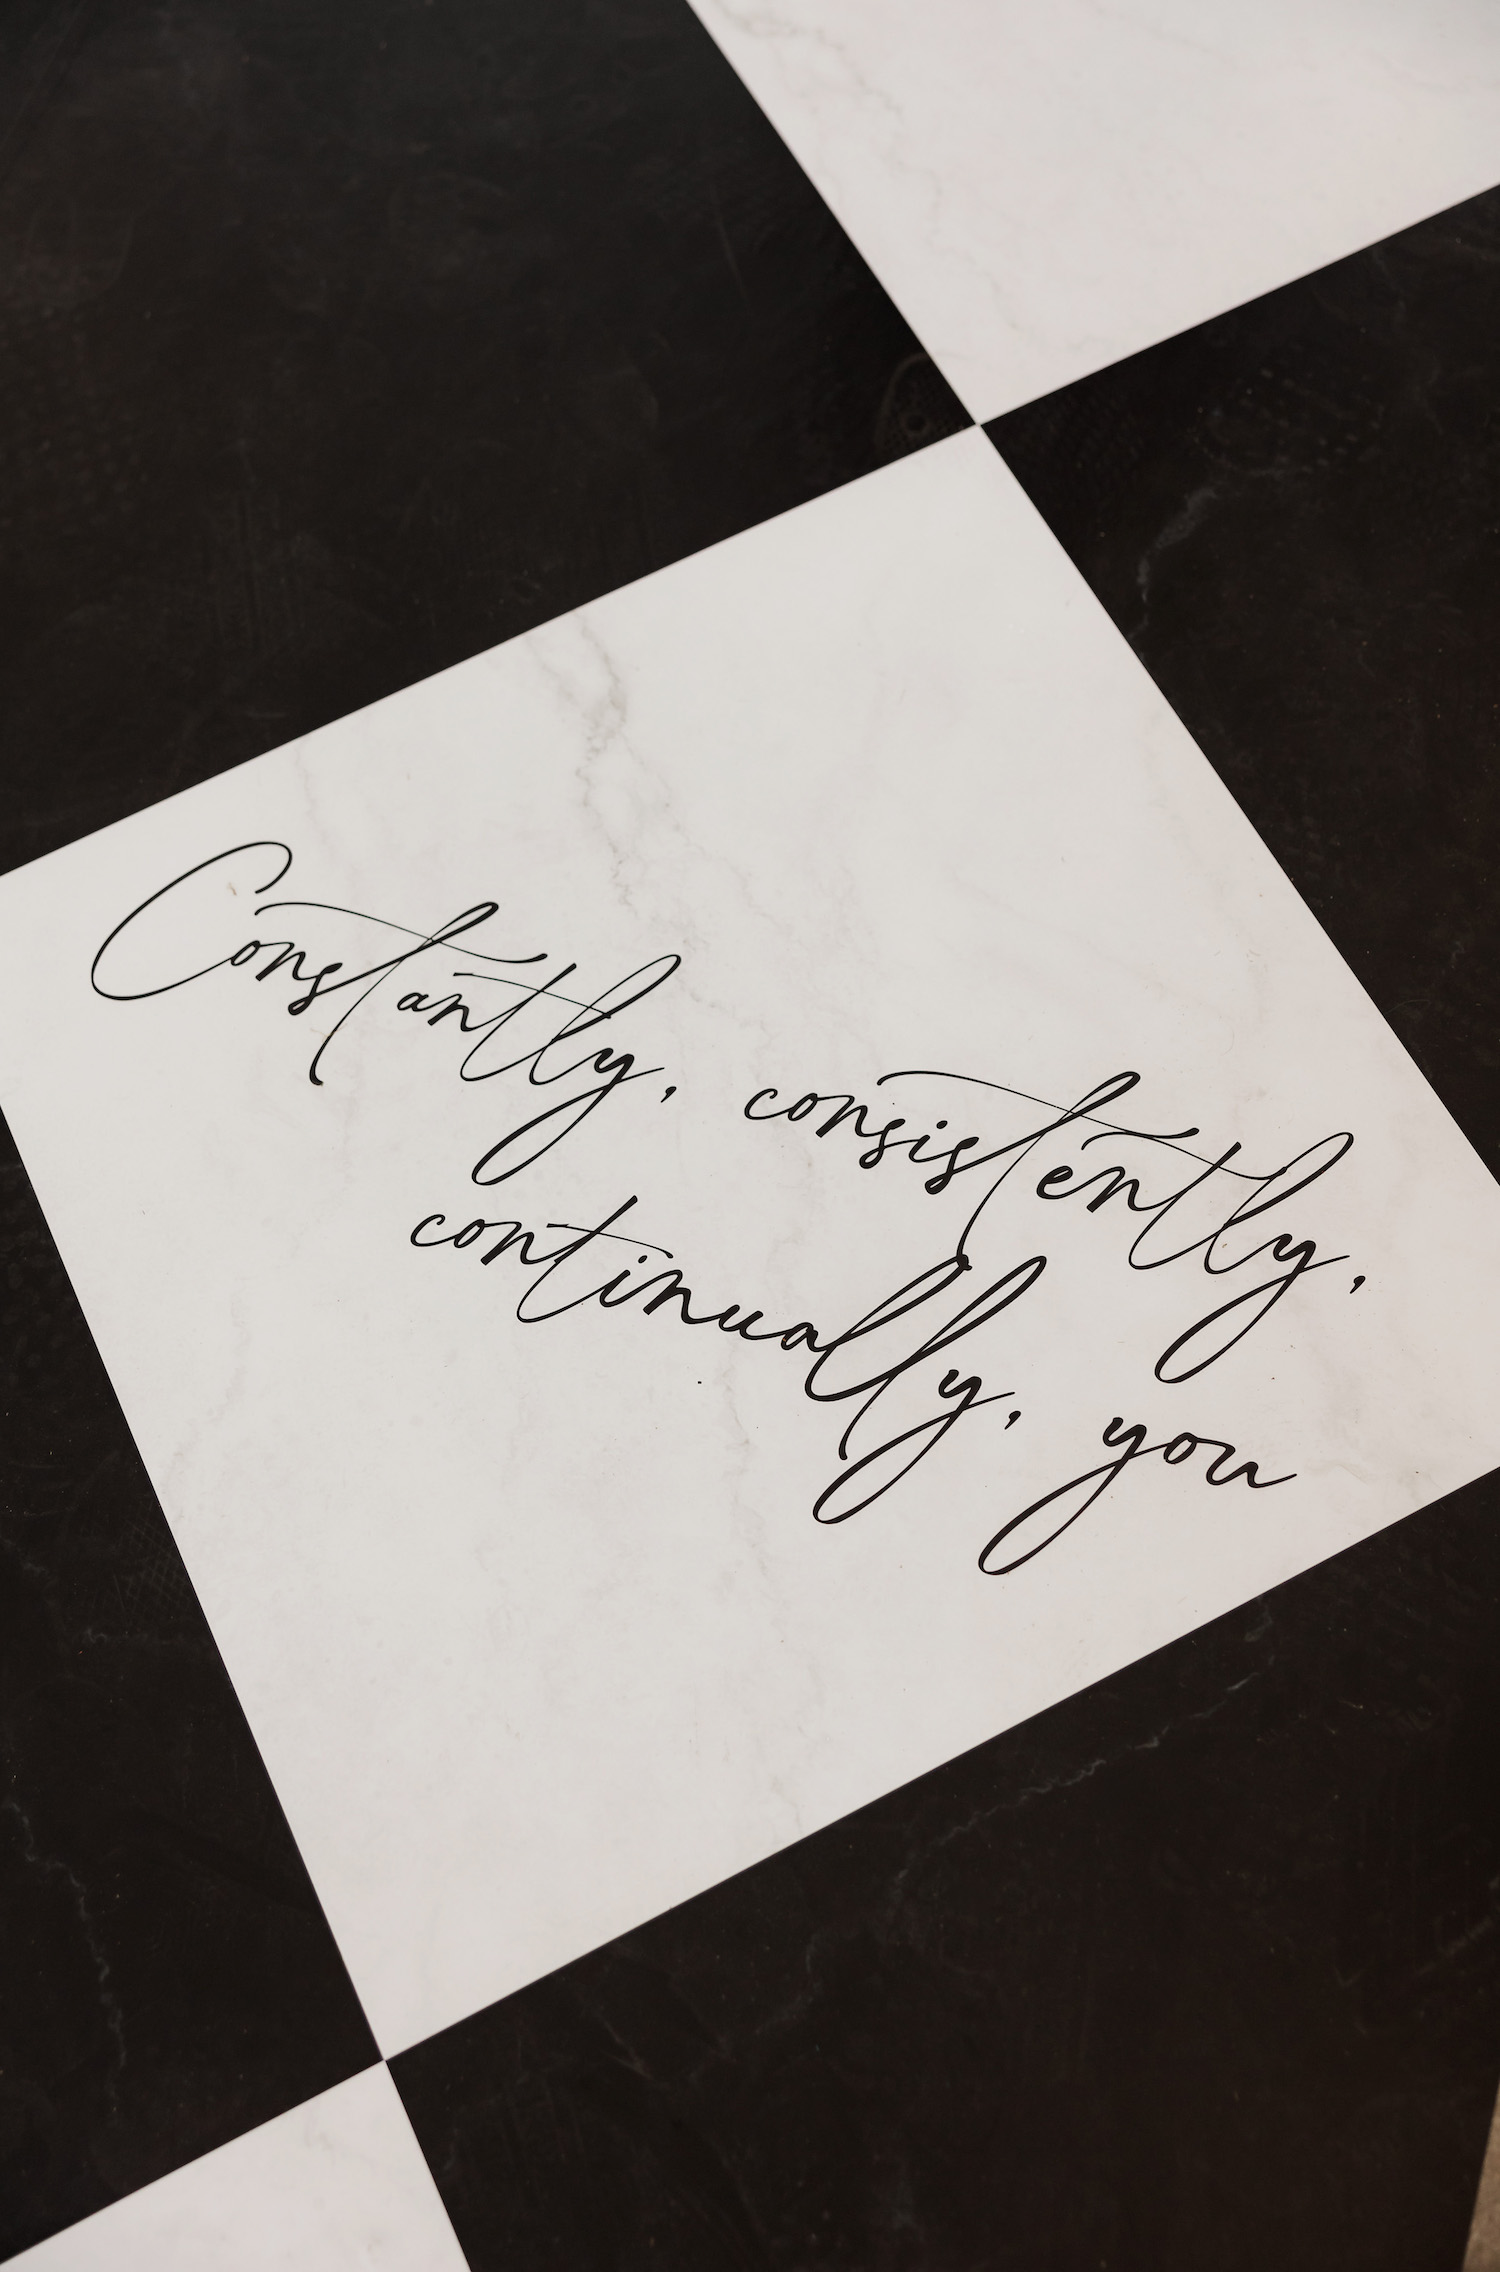 Constantly, consistently,
continually, you